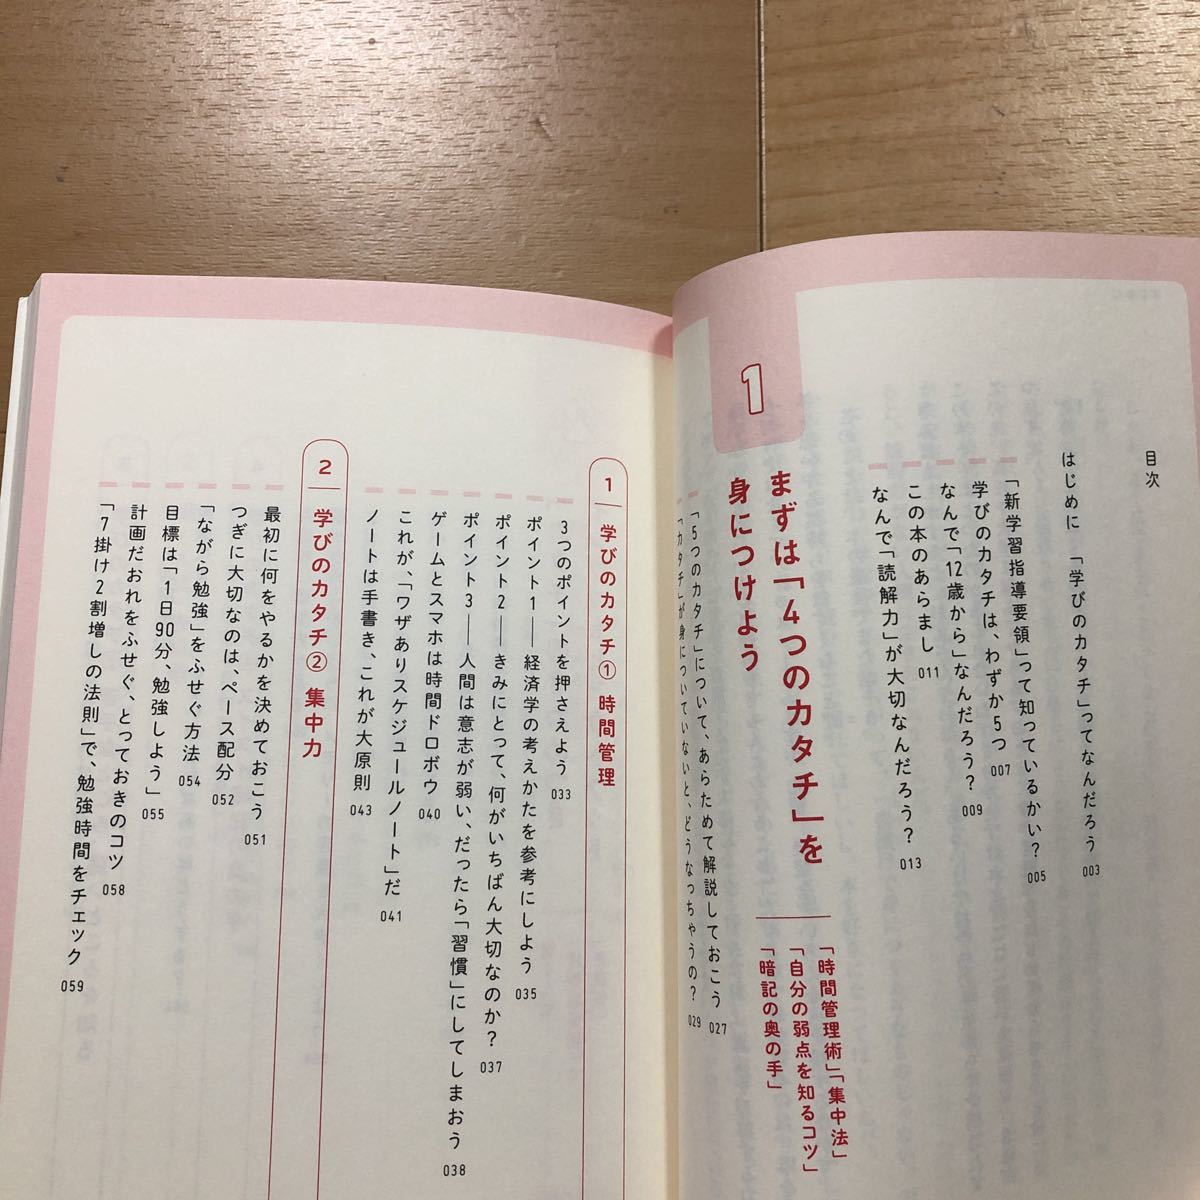 目次
はじめに 「学びのカタチ」ってなんだろう 003
「新学習指導要領」って知っているかい? 005
学びのカタチは、わずか5つ 007
なんで「12歳から」なんだろう? 009
この本のあらまし 011
なんで「読解力」が大切なんだろう? 013
1
まずは「4つのカタチ」を
身につけよう
「時間管理術」「集中法」
「自分の弱点を知るコツ」
「暗記の奥の手」
「5つのカタチ」について、あらためて解説しておこう 027
「カタチ」が身についていないと、どうなっちゃうの? 029
1 学びのカタチ① 時間管理
3つのポイントを押さえよう 033
ポイント1――経済学の考えかたを参考にしよう 035
ポイント2――きみにとって、何がいちばん大切なのか? 037
ポイント3――人間は意志が弱い、だったら「習慣」にしてしまおう 038
ゲームとスマホは時間ドロボウ 040
これが、「ワザありスケジュールノート」だ 041
ノートは手書き、これが大原則 043
2 学びのカタチ② 集中力
最初に何をやるかを決めておこう 051
つぎに大切なのは、ペース配分 052
「ながら勉強」をふせぐ方法 054
目標は「1日90分、勉強しよう」 055
計画だおれをふせぐ、とっておきのコツ 058
「7掛け2割増しの法則」で、勉強時間をチェック 059